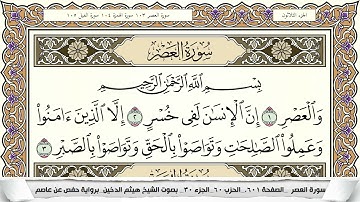 الجزء الثلاثون
سورة العصر ١٠٣ سورة الهمزة ١٠٤ سورة الفيل ١٠٥
سُورَةُ الْعَصْرِ
بِسْمِ اللَّهِ الرَّحْمَٰنِ الرَّحِيمِ
وَالْعَصْرِ ١ إِنَّ الْإِنسَٰنَ لَفِى خُسْرٍ ٢ إِلَّا الَّذِينَ ءَامَنُوا۟
وَعَمِلُوا۟ الصَّٰلِحَٰتِ وَتَوَاصَوْا۟ بِالْحَقِّ وَتَوَاصَوْا۟ بِالصَّبْرِ ٣
سورة العصر _الصفحة ٦٠١_ الحزب ٦٠_ الجزء ٣٠_ بصوت الشيخ هيثم الدخين_ برواية حفص عن عاصم